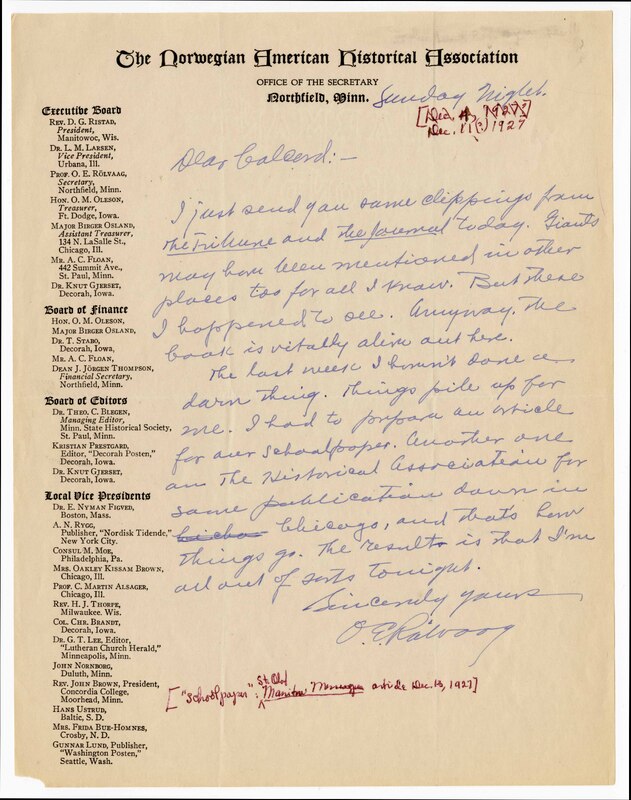 The Norwegian American Historical Association
OFFICE OF THE SECRETARY
Northfield, Minn.
Sunday Night.
[Dec. 4, 1927]
Dec. 11(?) 1927
Executive Board
REV. D. G. RISTAD,
President,
Manitowoc, Wis.
DR. L. M. LARSEN,
Vice President,
Urbana, Ill.
PROF. O. E. RÖLVAAG,
Secretary,
Northfield, Minn.
HON. O. M. OLESON,
Treasurer,
Ft. Dodge, Iowa.
MAJOR BIRGER OSLAND,
Assistant Treasurer,
134 N. LaSalle St.,
Chicago, Ill.
MR. A. C. FLOAN,
442 Summit Ave.,
St. Paul, Minn.
DR. KNUT GJERSET,
Decorah, Iowa.
Board of Finance
HON. O. M. OLESON,
MAJOR BIRGER OSLAND,
DR. T. STABO,
Decorah, Iowa.
MR. A. C. FLOAN,
DEAN J. JÖRGEN THOMPSON,
Financial Secretary,
Northfield, Minn.
Board of Editors
DR. THEO. C. BLEGEN,
Managing Editor,
Minn. State Historical Society,
St. Paul, Minn.
KRISTIAN PRESTGARD,
Editor, "Decorah Posten,"
Decorah, Iowa.
DR. KNUT GJERSET,
Decorah, Iowa.
Local Vice Presidents
DR. E. NYMAN FIGVED,
Boston, Mass.
A. N. RYGG,
Publisher, "Nordisk Tidende,"
New York City.
CONSUL M. MOE,
Philadelphia, Pa.
MRS. OAKLEY KISSAM BROWN,
Chicago, Ill.
PROF. C. MARTIN ALSAGER,
Chicago, Ill.
REV. H. J. THORPE,
Milwaukee. Wis.
COL. CHR. BRANDT,
Decorah, Iowa.
DR. G. T. LEE, Editor,
"Lutheran Church Herald,"
Minneapolis, Minn.
JOHN NORNBORG,
Duluth, Minn.
REV. JOHN BROWN, President,
Concordia College,
Moorhead, Minn.
HANS USTRUD,
Baltic, S. D.
MRS. FRIDA BUE-HOMNES,
Crosby, N. D.
GUNNAR LUND, Publisher,
"Washington Posten,"
Seattle, Wash.
Dear Colcord:—
I just send you some clippings from
the Tribune and the Journal today. Giants
may have been mentioned in other
places too for all I know. But these
I happened to see. Anyway, the
book is vitally alive out here.
The last week I haven't done a
darn thing. Things pile up for
me. I had to prepare an article
for our schoolpaper. Another one
on The Historical Association for
some publication down in
Chicago, and that's how
things go. The result is that I'm
all out of sorts tonight.
Sincerely yours
O. E. Rölvaag
["Schoolpaper": St. Olaf Manitou Messenger article Dec. 13, 1927]